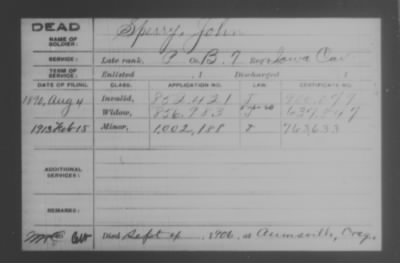 DEAD
NAME OF SOLDIER: Sperry, John
SERVICE: Late rank, P Co. B. 7 Reg't Iowa Cav
TERM OF SERVICE: Enlisted , 1 Discharged , 1
DATE OF FILING. CLASS. APPLICATION NO. LAW. CERTIFICATE NO.
1890, Aug 4 Invalid, 802.421
Widow, 856.983
1913 Feb 15 Minor, 1,002,188 763,633
ADDITIONAL SERVICES:
REMARKS:
Died Sept 4 , 1906, at Aumsville, Oreg.